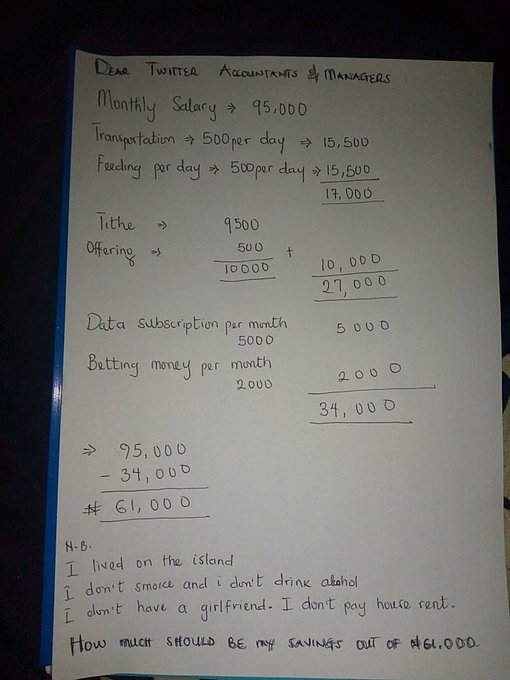 DEAR TWITTER ACCOUNTANTS & MANAGERS
Monthly Salary => 95,000
Transportation => 500 per day => 15,500
Feeding per day => 500 per day => 15,500
17,000
Tithe => 9500
Offering => 500 +
10000 10,000
27,000
Data subscription per month 5000
5000
Betting money per month
2000 2000
34,000
=> 95,000
- 34,000
₦ 61,000
N.B.
I lived on the island
I don't smoke and i don't drink alcohol
I don't have a girlfriend. I don't pay house rent.
HOW MUCH SHOULD BE MY SAVINGS OUT OF ₦61,000.